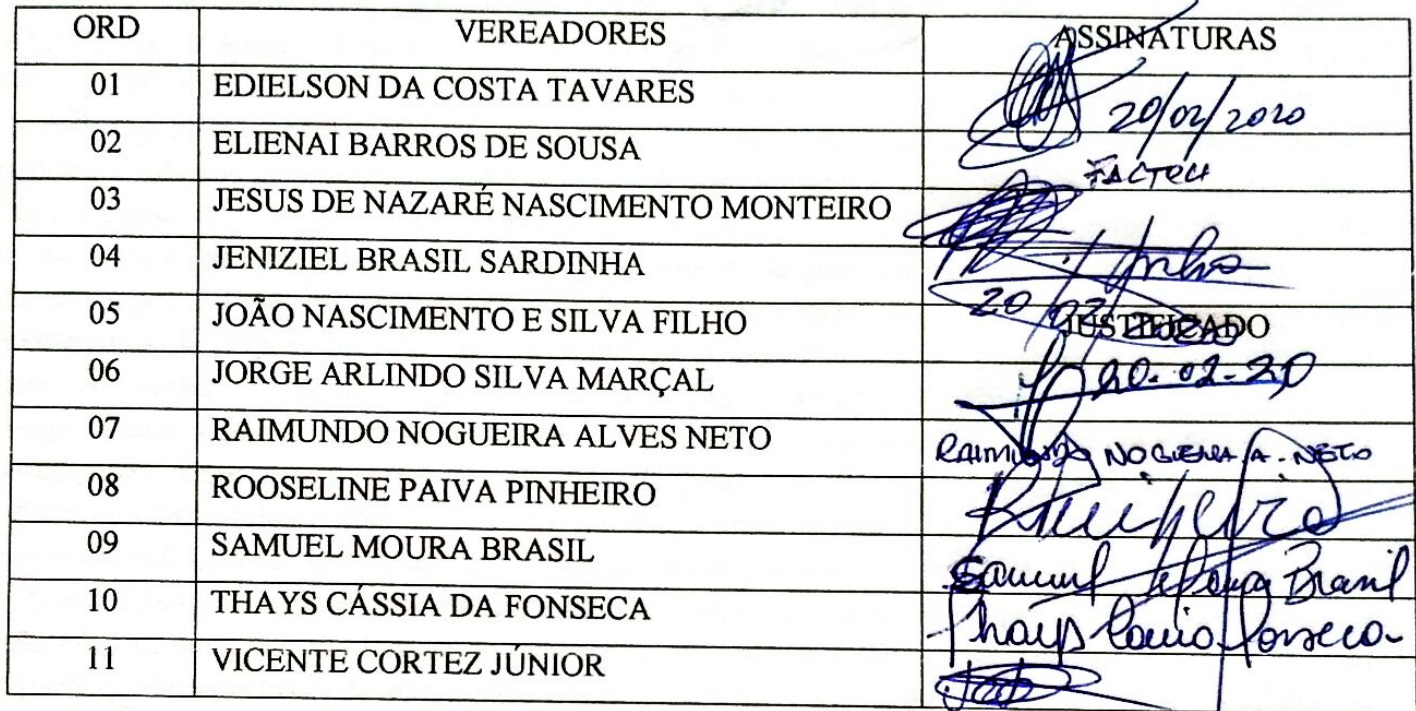 ORD VEREADORES ASSINATURAS
01 EDIELSON DA COSTA TAVARES 20/02/2020
02 ELIENAI BARROS DE SOUSA
03 JESUS DE NAZARÉ NASCIMENTO MONTEIRO
04 JENIZIEL BRASIL SARDINHA
05 JOÃO NASCIMENTO E SILVA FILHO 20/02/2020 JUSTIFICADO
06 JORGE ARLINDO SILVA MARÇAL 20-02-20
07 RAIMUNDO NOGUEIRA ALVES NETO RAIMUNDO NOGUEIRA A. NETO
08 ROOSELINE PAIVA PINHEIRO
09 SAMUEL MOURA BRASIL Samuel Moura Brasil
10 THAYS CÁSSIA DA FONSECA Thays Cássia Fonseca
11 VICENTE CORTEZ JÚNIOR